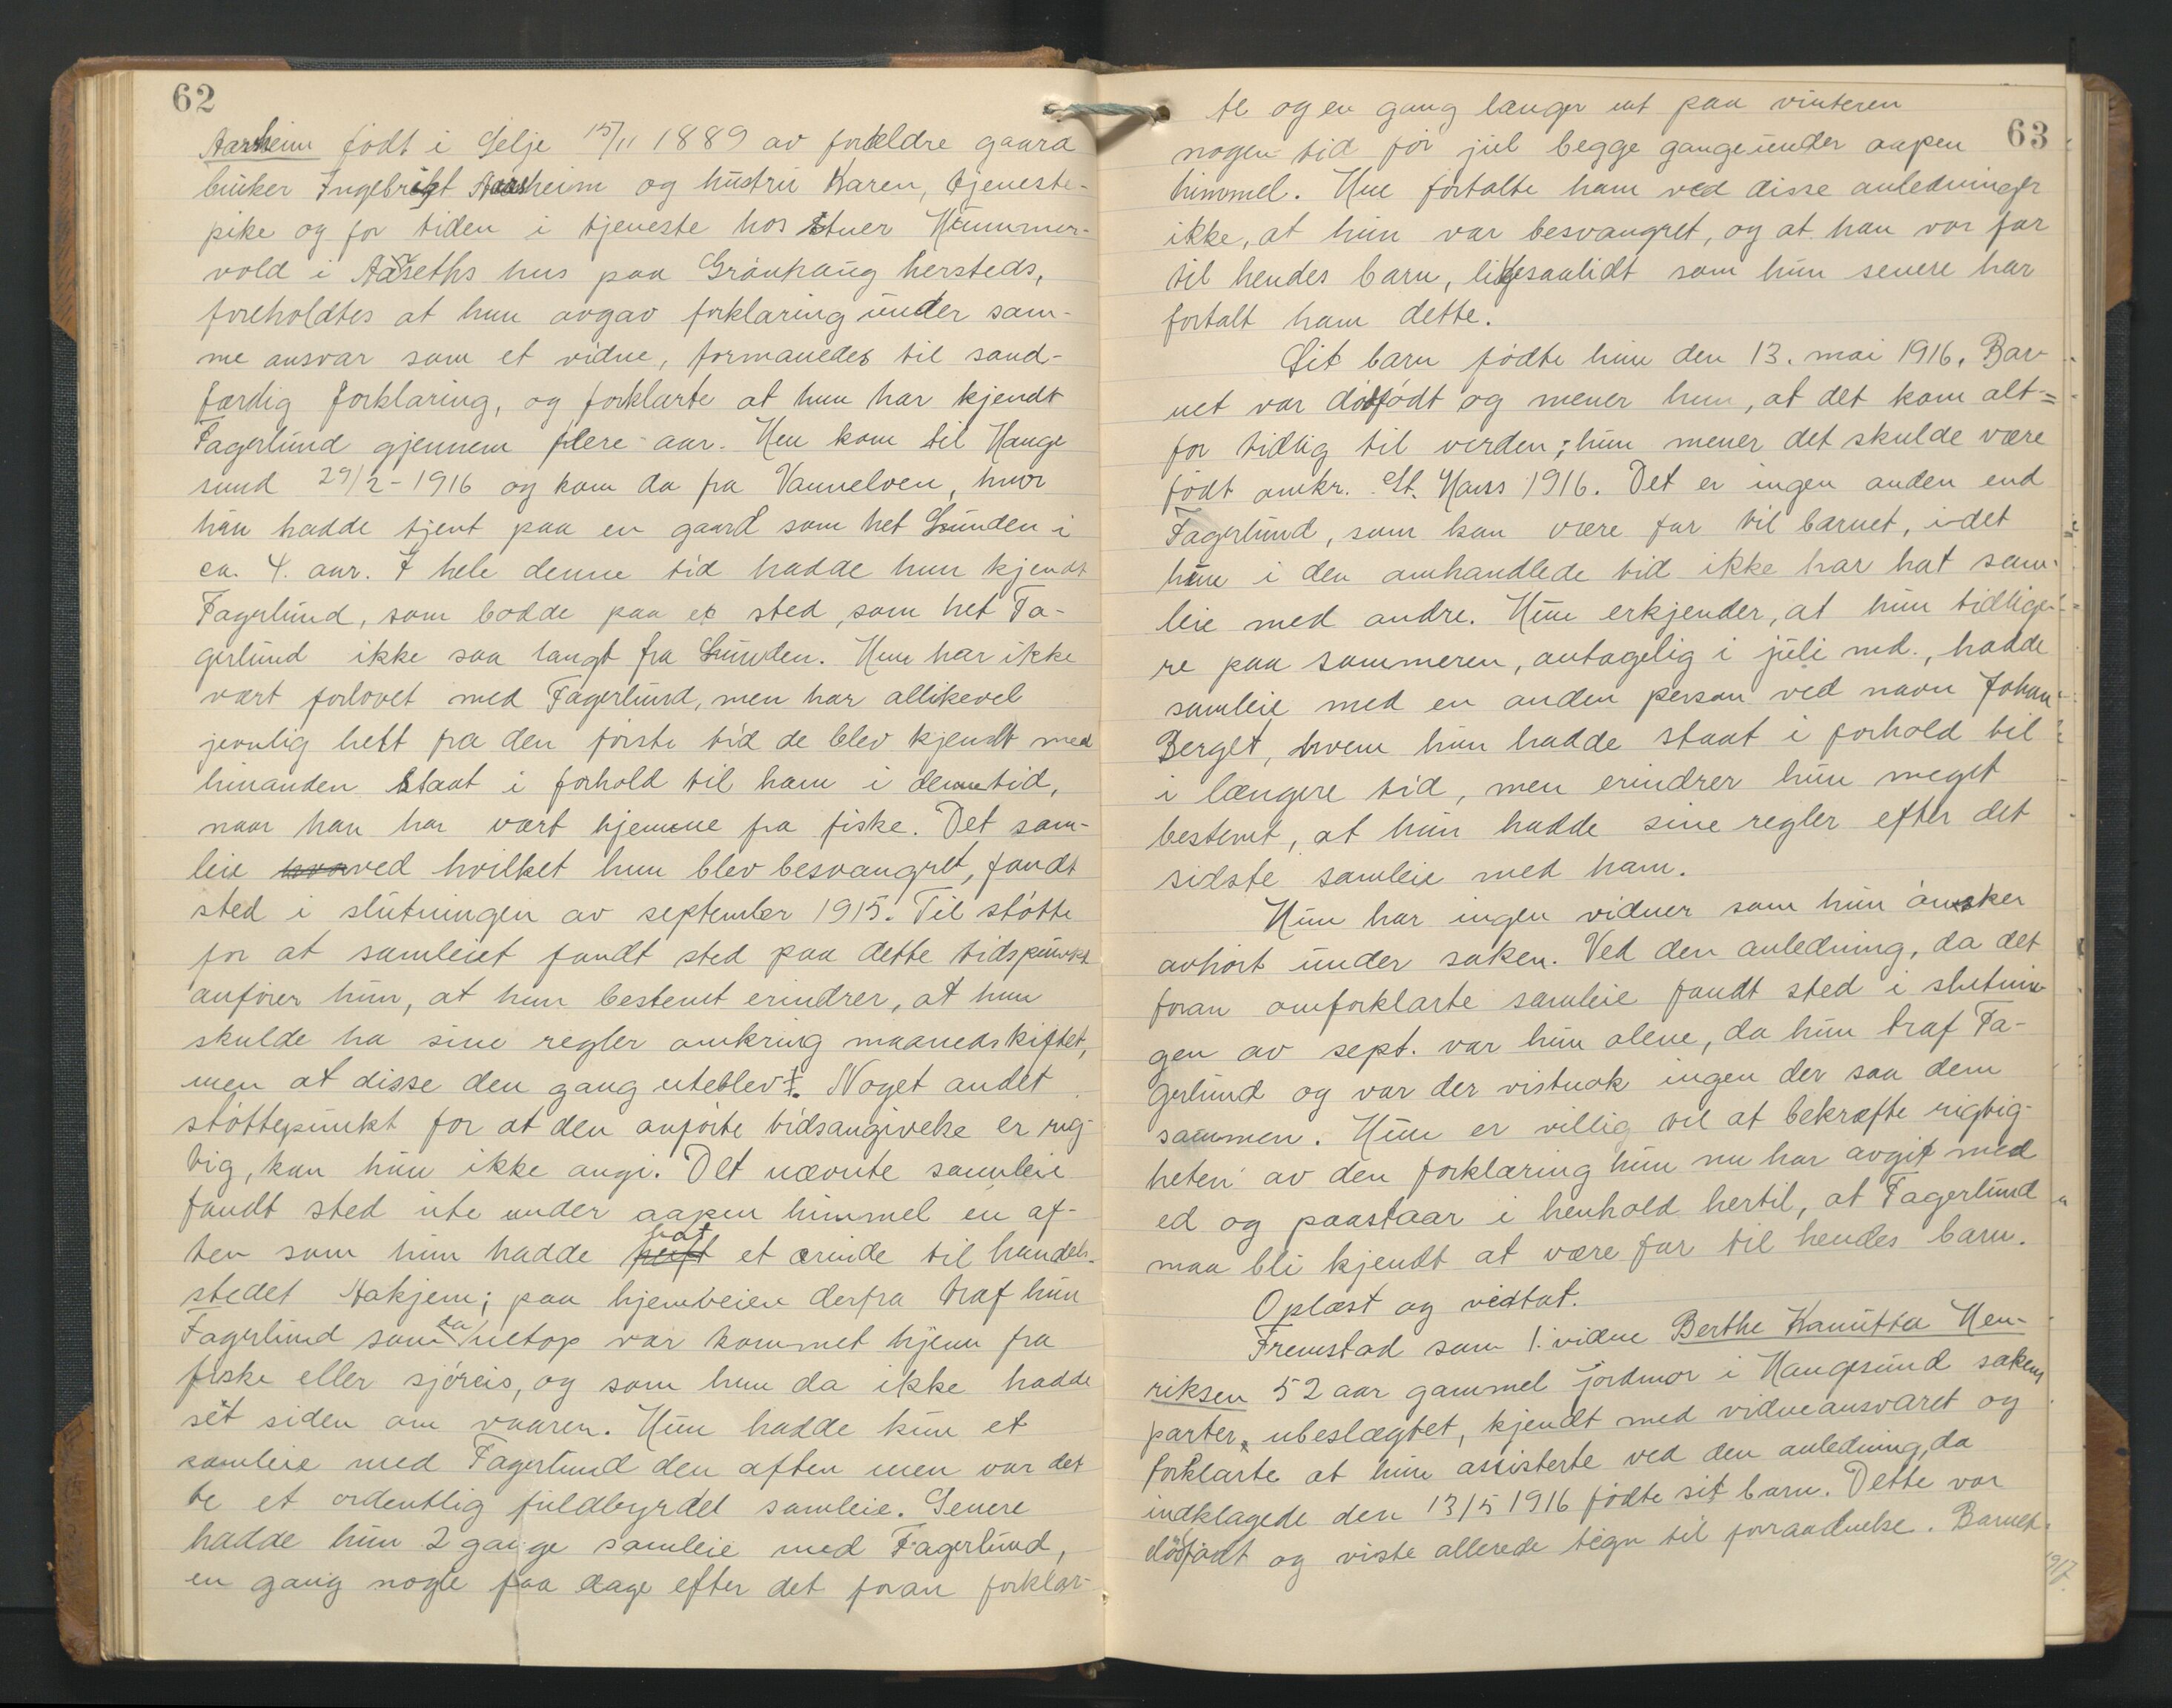 62
Aarsheim født i Selje 15/11 1889 av forældre gaard
bruker Ingebrigt Aarsheim og hustru Karen, tjeneste-
pike og for tiden i tjeneste hos stuer Hummer-
vold i Aaseths hus paa Grønhaug hersteds,
foreholdtes at hun avgav forklaring under sam-
me ansvar som et vidne, formanedes til sand-
færdig forklaring, og forklarte at hun har kjendt
Fagerlund gjennem flere aar. Hun kom til Hauge
sund 29/2-1916 og kom da fra Vannelven, hvor
hun hadde tjent paa en gaard som het Lunden i
ca. 4. aar. I hele denne tid hadde hun kjendt
Fagerlund, som bodde paa et sted, som het Fa-
gerlund ikke saa langt fra Lunden. Hun har ikke
vært forlovet med Fagerlund, men har allikevel
jevnlig helt fra den første tid de blev kjendt med
hinanden staat i forhold til ham i denne tid,
naar han har vært hjemme fra fiske. Det sam-
leie hvorved hvilket hun blev besvangret, fandt
sted i slutningen av september 1915. Til støtte
for at samleiet fandt sted paa dette tidspunkt
anfører hun, at hun bestemt erindrer, at hun
skulde ha sine regler omkring maanedskiftet,
men at disse den gang uteblev. Noget andet
støttepunkt for at den anførte tidsangivelse er rig-
tig, kan hun ikke angi. Det nævnte samleie
fandt sted ute under aapen himmel en af-
ten som hun hadde hat et ærinde til handels-
stedet Aakjem; paa hjemveien derfra traf hun
Fagerlund som da netop var kommet hjem fra
fiske eller sjøreis, og som hun da ikke hadde
set siden om vaaren. Hun hadde kun et
samleie med Fagerlund den aften men var det
te et ordentlig fuldbyrdet samleie. Senere
hadde hun 2 gange samleie med Fagerlund,
en gang nogle faa dage efter det foran forklar-
63
te og en gang længer ut paa vinteren
nogen tid før jul begge gange under aapen
himmel. Hun fortalte ham ved disse anledninger
ikke, at hun var besvangret, og at han var far
til hendes barn, likesaalidt som hun senere har
fortalt ham dette.
Sit barn fødte hun den 13. mai 1916. Bar-
net var dødfødt og mener hun, at det kom alt=
for tidlig til verden; hun mener det skulde være
født omkr. St. Hans 1916. Det er ingen anden end
Fagerlund, som kan være far til barnet, i det
hun i den omhandlede tid ikke har hat sam-
leie med andre. Hun erkjender, at hun tidlige-
re paa sommeren, antagelig i juli md., hadde
samleie med en anden person ved navn Johan
Berget, hvem hun hadde staat i forhold til
i længere tid, men erindrer hun meget
bestemt, at hun hadde sine regler efter det
sidste samleie med ham.
Hun har ingen vidner som hun ønsker
avhørt under saken. Ved den anledning, da det
foran omforklarte samleie fandt sted i slutnin-
gen av sept. var hun alene, da hun traf Fa-
gerlund og var der vistnok ingen der saa dem
sammen. Hun er villig til at bekræfte rigtig-
heten av den forklaring hun nu har avgit med
ed og paastaar i henhold hertil, at Fagerlund
maa bli kjendt at være far til hendes barn.
Oplæst og vedtat.
Fremstod som 1. vidne Berthe Kamitta Hen-
riksen 52 aar gammel jordmor i Haugesund sakens
parter ubeslægtet, kjendt med vidneansvaret og
forklarte at hun assisterte ved den anledning, da
indklagede den 13/5 1916 fødte sit barn. Dette var
dødfødt og viste allerede tegn til forraadnelse. Barnet